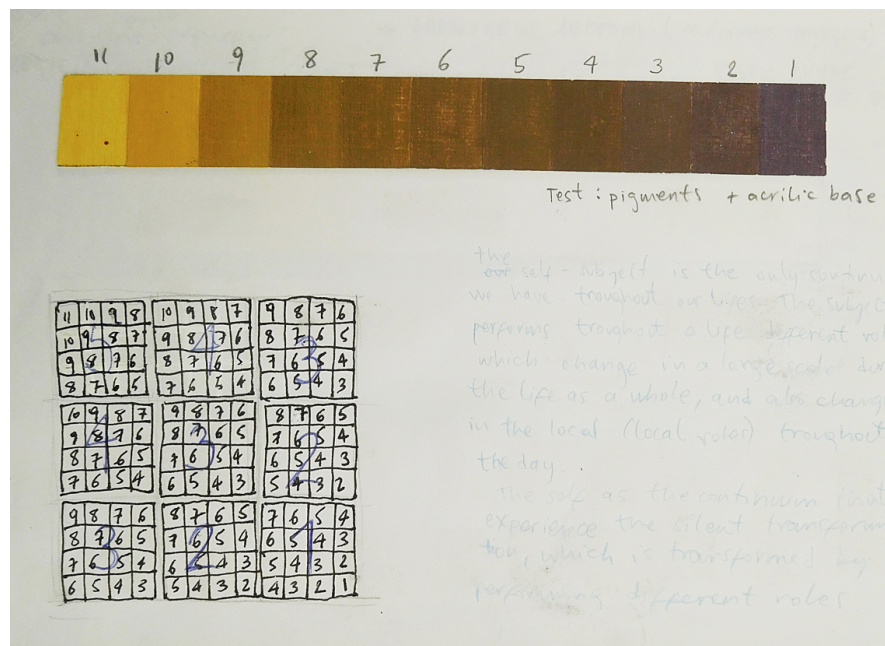 11 10 9 8 7 6 5 4 3 2 1
Test : pigments + acrilic base
the
our self-subject is the only continu
we have troughout our lives. The subject
performs troughout a life different rol
which change in a large scale dur
the life as a whole, and also chang
in the local (local roles) troughout
the day.
The self as the continuum that
experience the silent transform
tion, which is transformed by
performing different roles
11 10 9 8 10 9 8 7 9 8 7 6
10 9 8 7 9 8 7 6 8 7 6 5
9 8 7 6 8 7 6 5 7 6 5 4
8 7 6 5 7 6 5 4 6 5 4 3
5 4 3
10 9 8 7 9 8 7 6 8 7 6 5
9 8 7 6 8 7 6 5 7 6 5 4
8 7 6 5 7 6 5 4 6 5 4 3
7 6 5 4 6 5 4 3 5 4 3 2
4 3 2
9 8 7 6 8 7 6 5 7 6 5 4
8 7 6 5 7 6 5 4 6 5 4 3
7 6 5 4 6 5 4 3 5 4 3 2
6 5 4 3 5 4 3 2 4 3 2 1
3 2 1